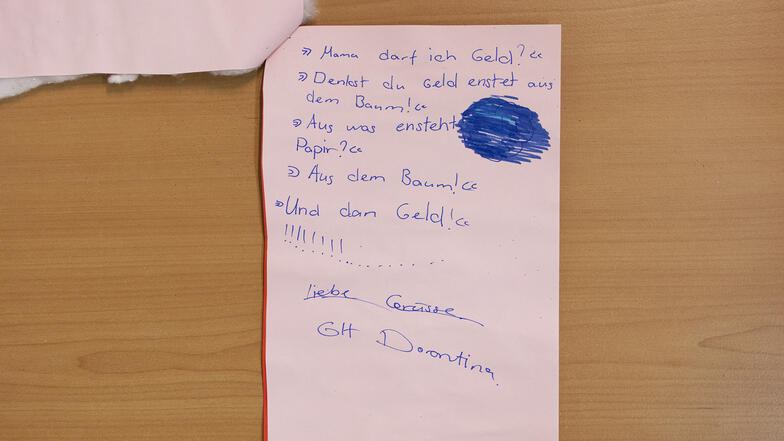 »Mama darf ich Geld?«
»Denkst du Geld enstet aus
dem Baum!«
»Aus was ensteht
Papir?«
»Aus dem Baum!«
»Und dan Geld!«
!!!!!!!!
Liebe Grüsse
GH Dorontina